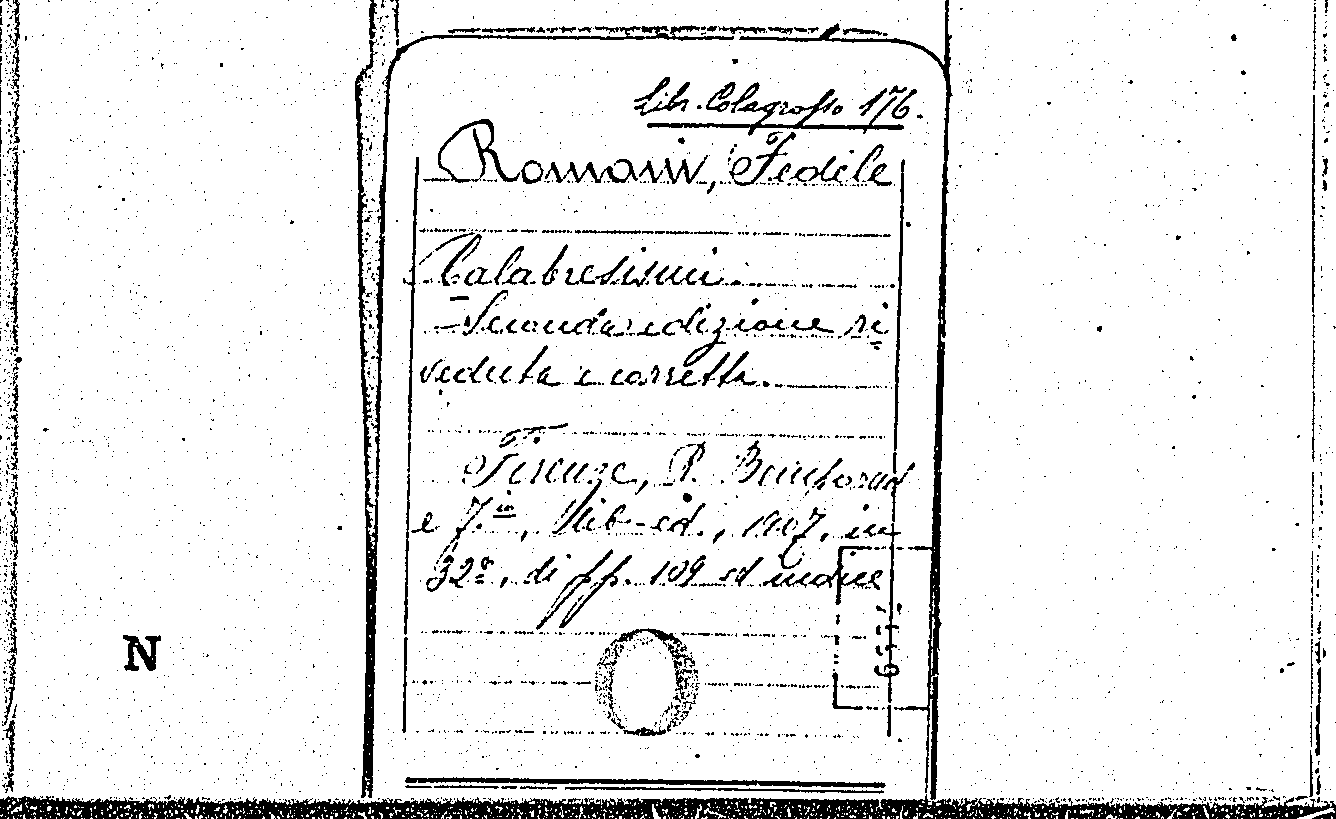 Libr. Colagrosso 176.
Romani, Fedele
Calabresismi.
- Seconda edizione ri=
veduta e corretta.
Firenze, R. Bemporad
e F.io, lib.-ed., 1907, in
32º, di pp. 109 ed indice
N